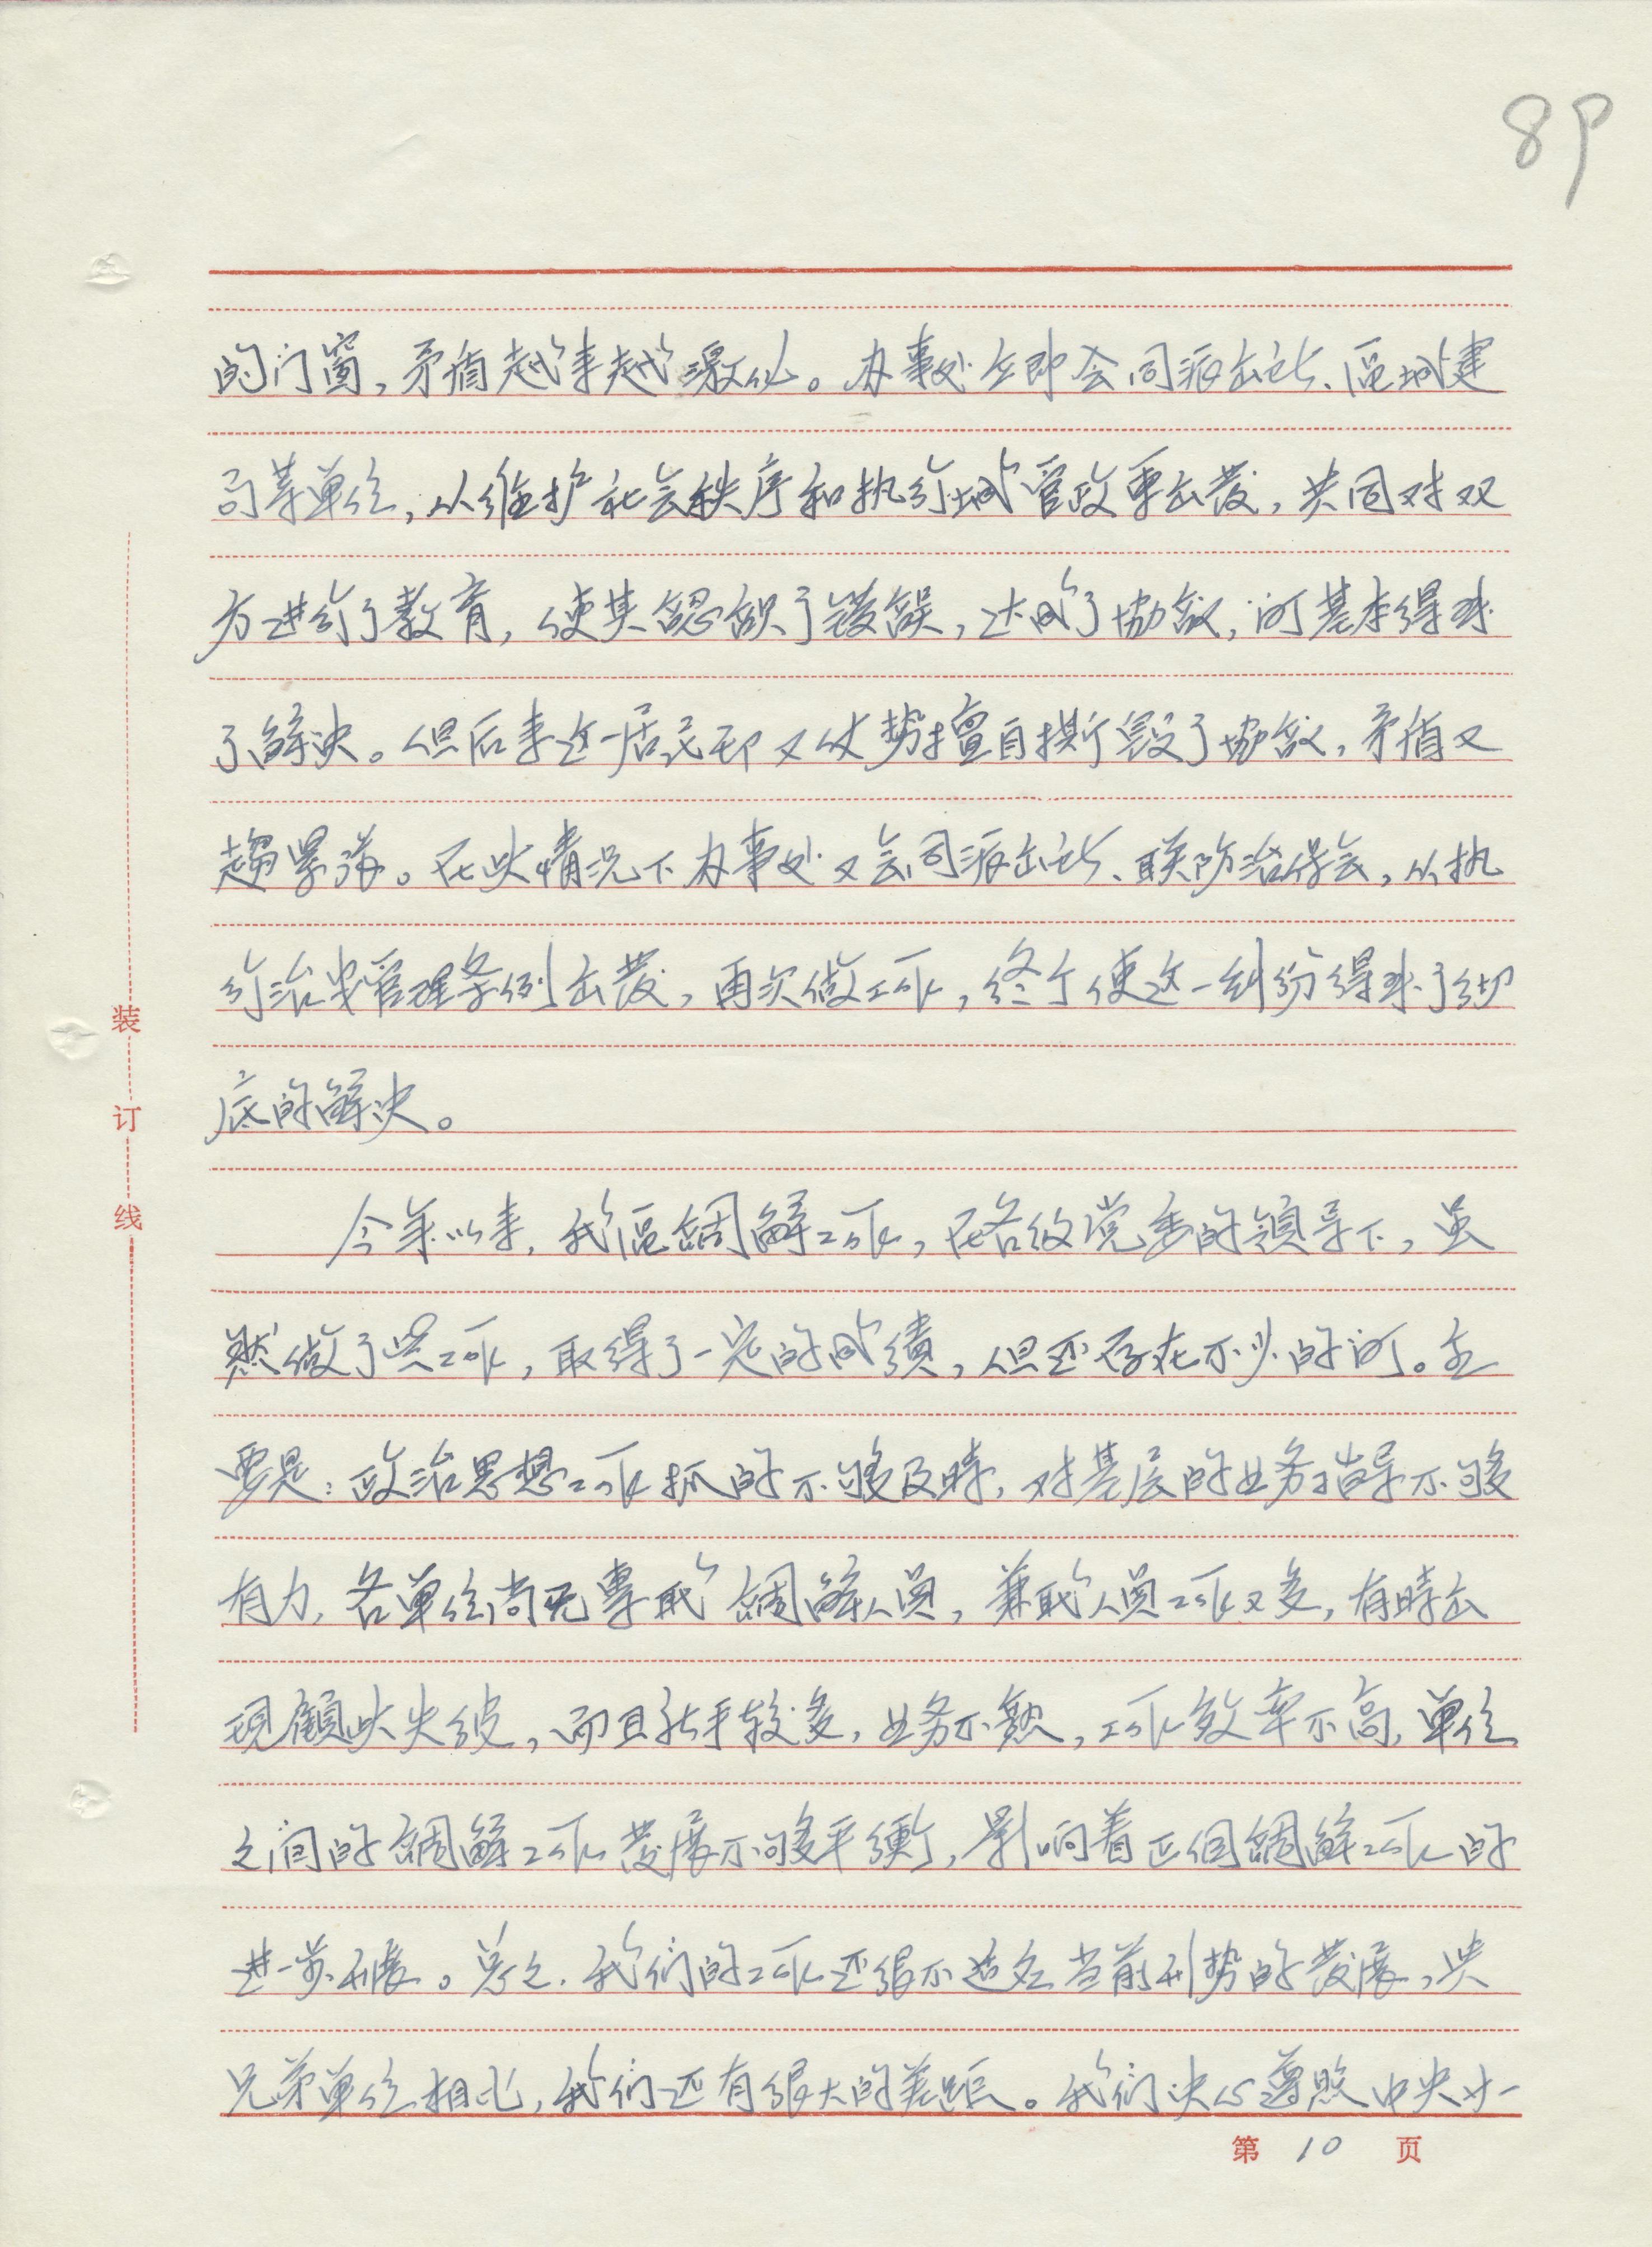 89
的门窗，矛盾越来越激化。办事处立即会同派出所、區城建
司等单位，从维护社会秩序和执行城管政策出发，共同对双
方进行了教育，使其認識了錯誤，达成了協議，问基本得到
了解决。但后来这一居民却又仗势擅自撕毁了协議，矛盾又
趨緊張。在此情况下办事处又会同派出所、联防治保会，从执
行治安管理条例出发，再次做工作，终于使这一纠纷得到了彻
底的解决。
今年以来，我區調解工作，在各级党委的领导下，虽
然做了些工作，取得了一定的成績，但还存在不少的问。主
要是：政治思想工作抓的不够及時，对基层的业务指导不够
有力，各单位尚无專职調解人員，兼职人員工作又多，有時出
现顧此失彼，而且新手较多，业务不熟，工作效率不高，单位
之间的調解工作发展不够平衡，影响着正個調解工作的
进一步开展。总之，我们的工作还很不适应当前形势的发展，与
兄弟单位相比，我们还有很大的差距。我们决心遵照中央廿一
装
订
线
第 10 页